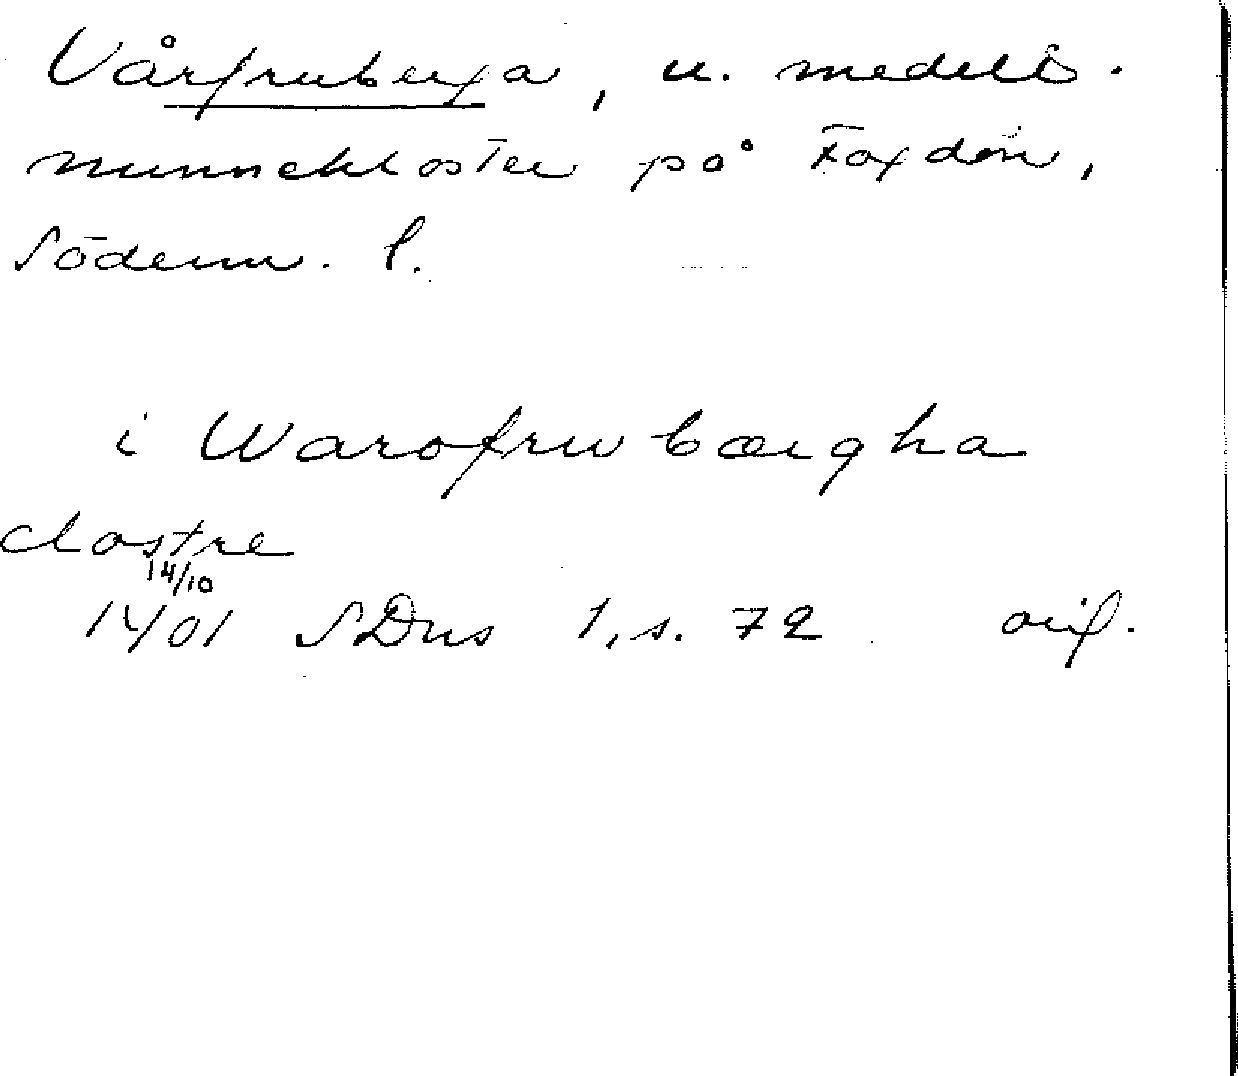 Vårfruberga, n. medelt.
nunnekloster på Fogdön,
Söderm. l.
i Warofrwbærgha
clostre
14/10
1401 SDns 1, s. 72 orig.